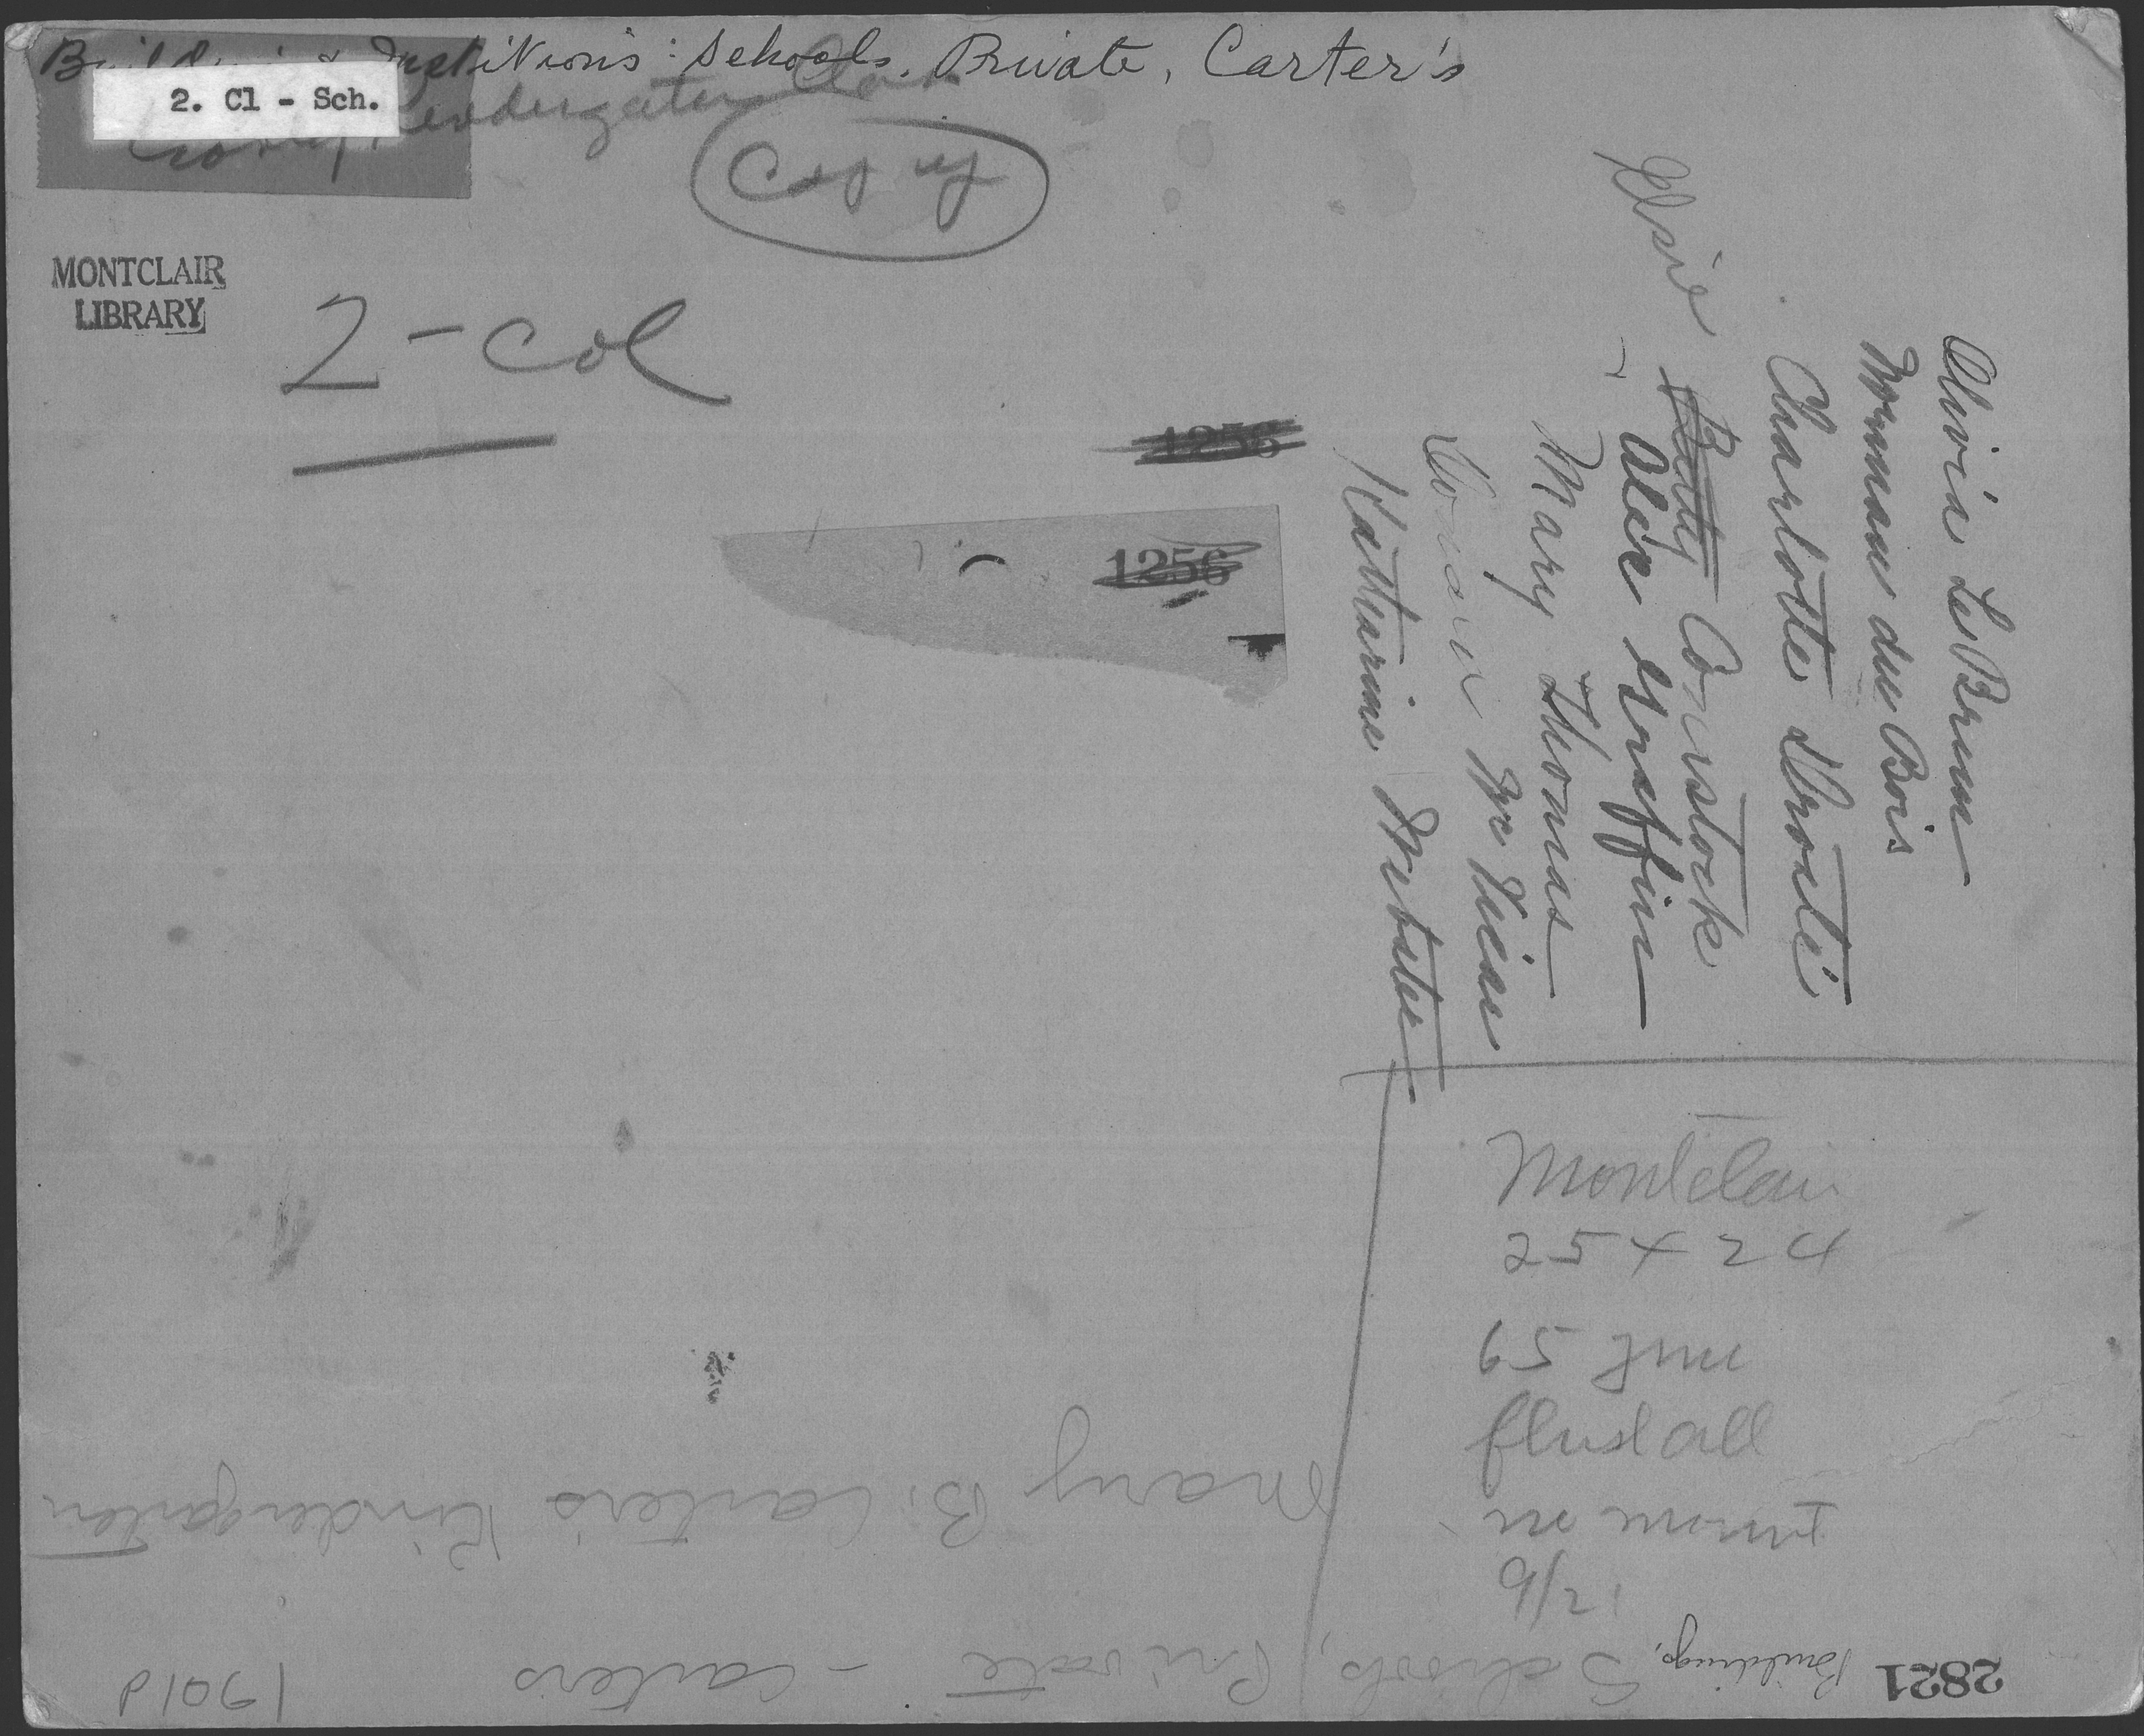 Institutions: Schools, Private, Carter's
2. Cl - Sch.
Kindergarten Class
Copy
MONTCLAIR
LIBRARY
2-col
1256
1256
Olivia LeBrun
Norman du Bois
Charlotte
Elsie Betty Comstock
Alice Griffin
Mary Thomas
Katharine Webster
Montclair
25 x 24
65
flush all
9/21
Mary B. Carter's Kindergarten
Buildings, Schools, Private - Carters
2821